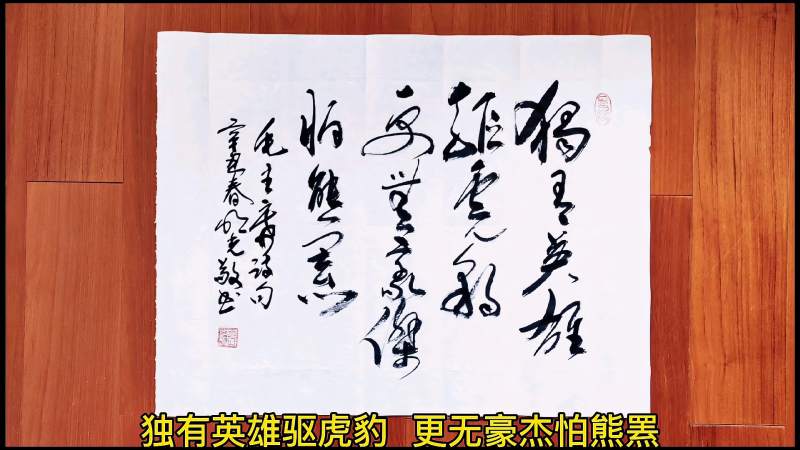 獨有英雄
驅虎豹
更無豪傑
怕熊罴
毛主席诗句
辛丑春敬书
独有英雄驱虎豹 更无豪杰怕熊罴